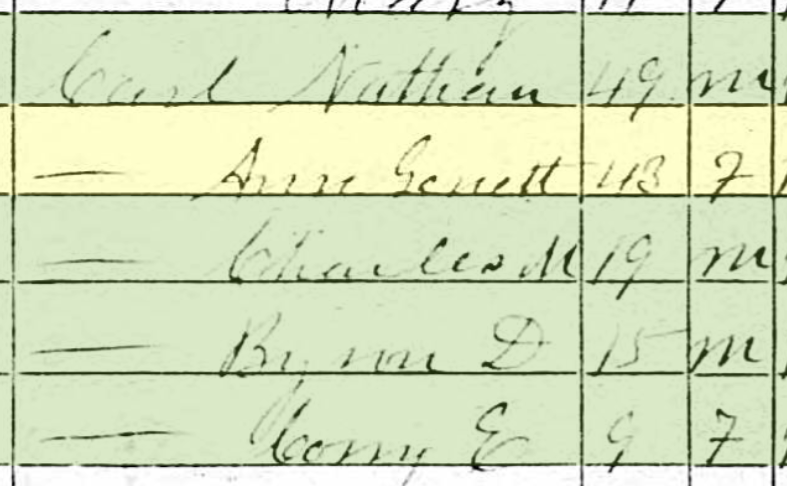 Carl Nathan 49 m
— Ann Genett 43 F
— Charles M 19 m
— Byron D 15 m
— Corry E 9 F